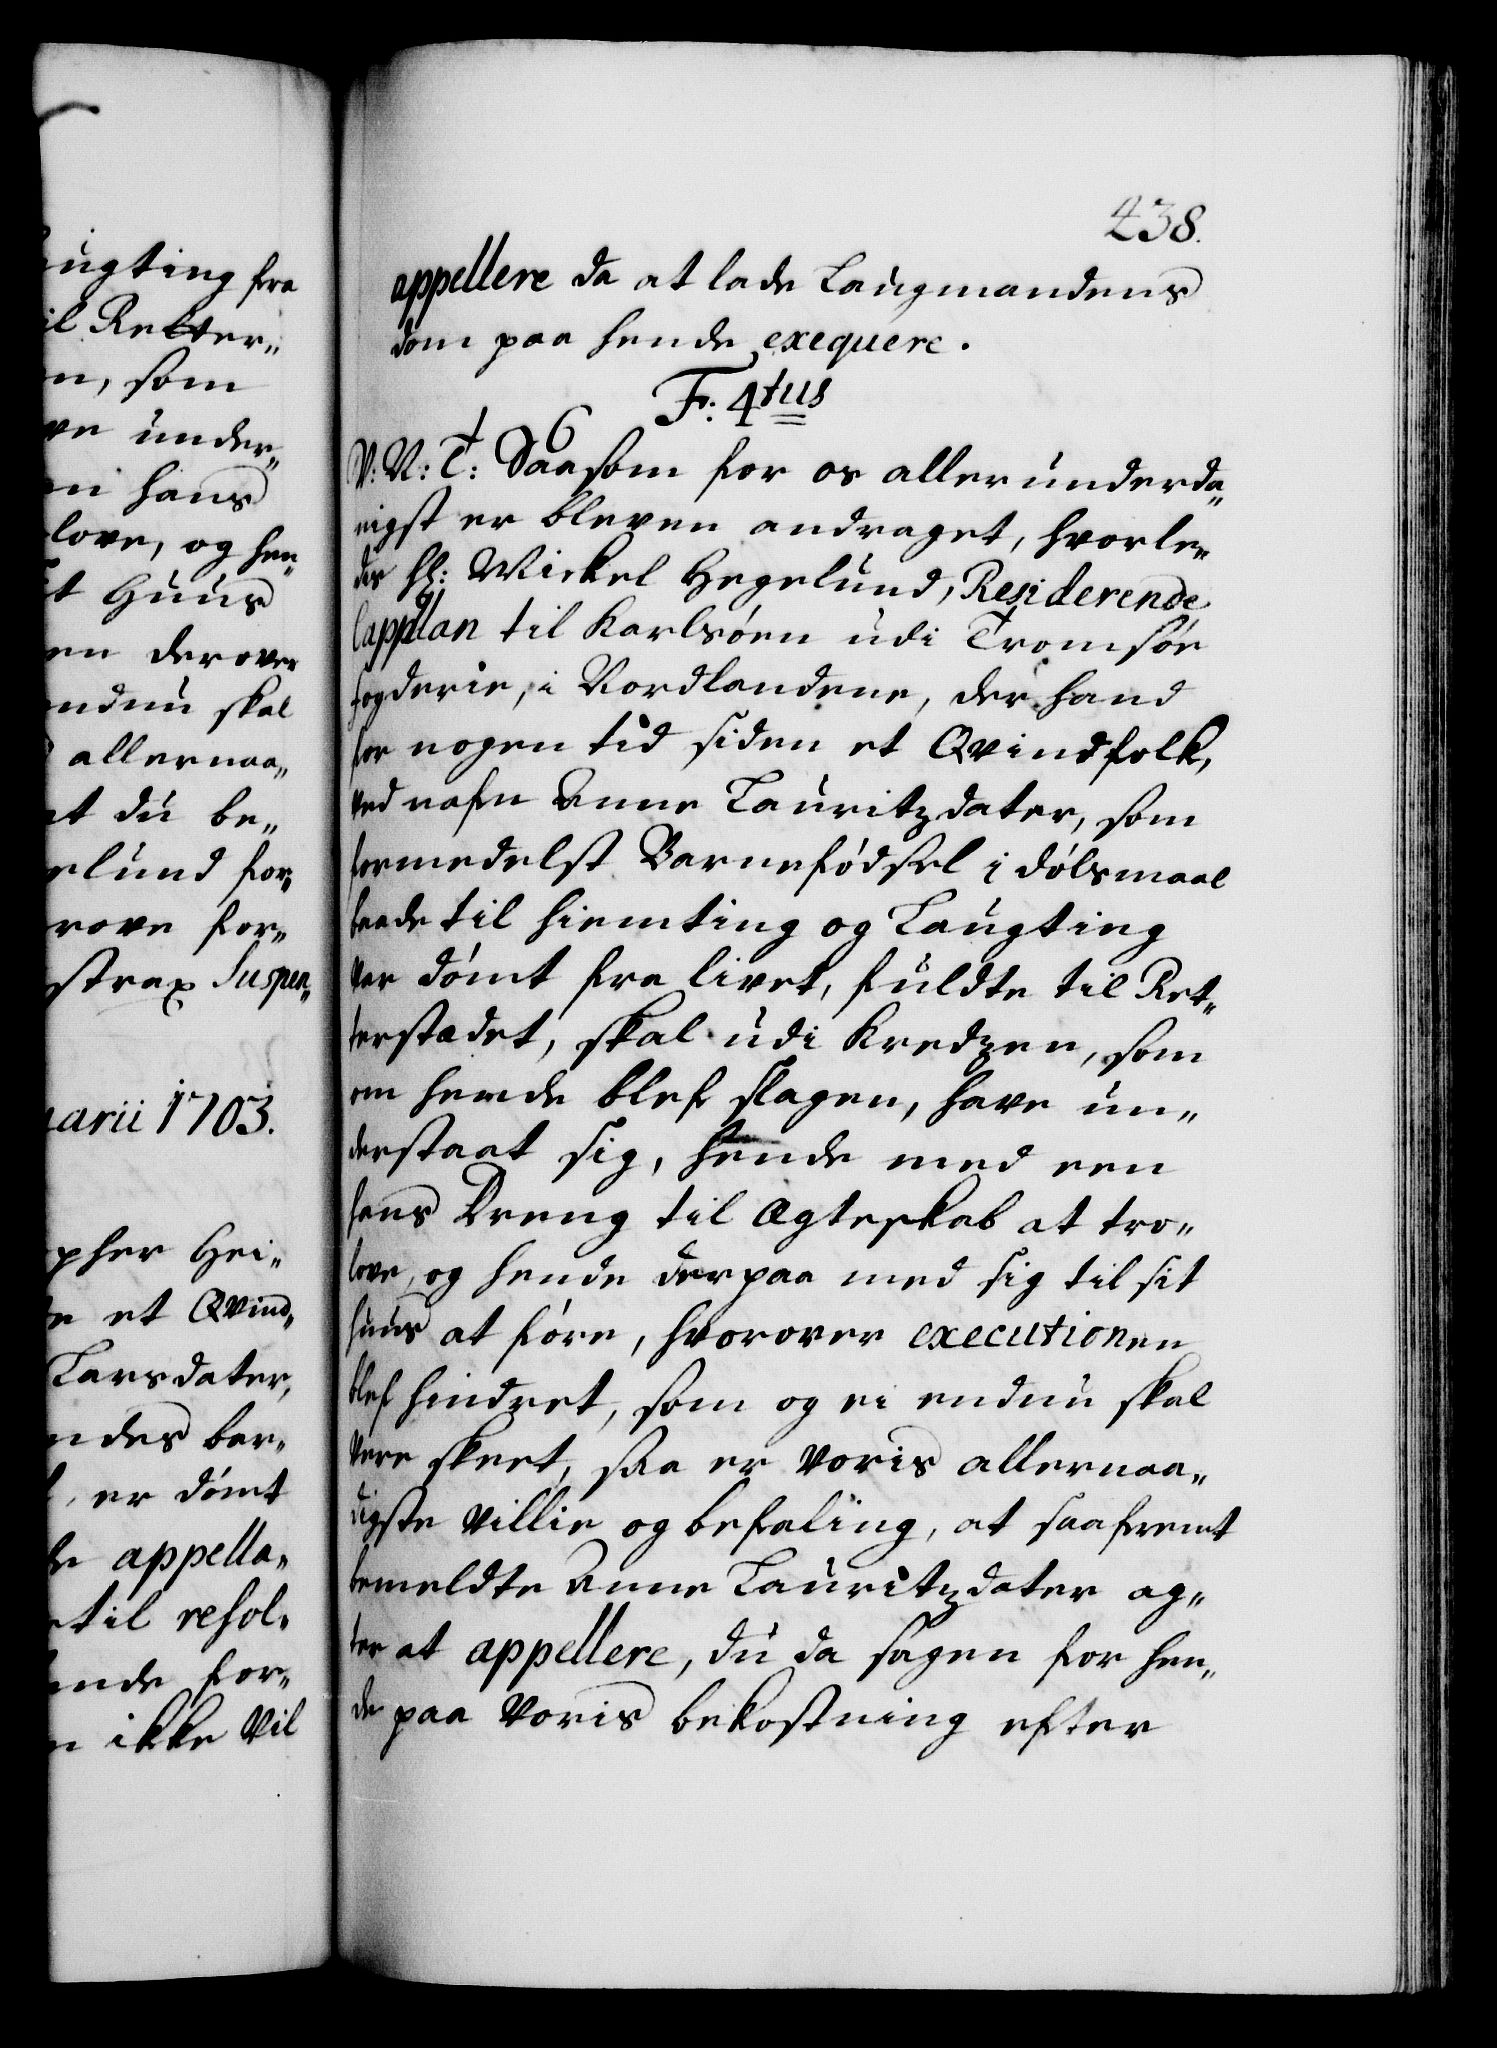 ugting fra
il Retter„
n, som
ve under„
en hans
love, og hen„
t Huus
en derover
ndnu skal
allernaa„
at du be„
elund for„
rove for„
strax Suspen„
arii 1703.
pher Hei„
et Qvind„
Larsdater,
ndes bar„
er dömt
de appella„
til resol„
ende for„
ikke vil
438.
appellere da at lade Laugmandens
dom paa hende exequere.
F: 4tus
6
V: N: T: Saasom for os allerunderda„
nigst er bleven andraget, hvorle„
des Hr: Mickel Hegelund, Residerende
Cappellan til Karlsöen udi Tromsöe
fogderie, i Nordlandene, der hand
for nogen tid siden et Qvindfolk,
ved nafn Anne Lauritzdater, som
formedelst Barnefödsel i dölsmaal
baade til Hiemting og Laugting
var dömt fra livet, fuldte til Ret„
terstædet, skal udi Kredzen, som
om hende blef slagen, have un„
derstaat sig, hende med een
hans Dreng til Ægteskab at tro„
love, og hende derpaa med sig til sit
huus at före, hvorover executionen
blef hindret, som og ei endnu skal
være skeet, saa er voris allernaa„
digste villie og befaling, at saafremt
bemeldte Anne Lauritzdater ag„
ter at appellere, du da sagen for hen„
de paa voris bekostning efter